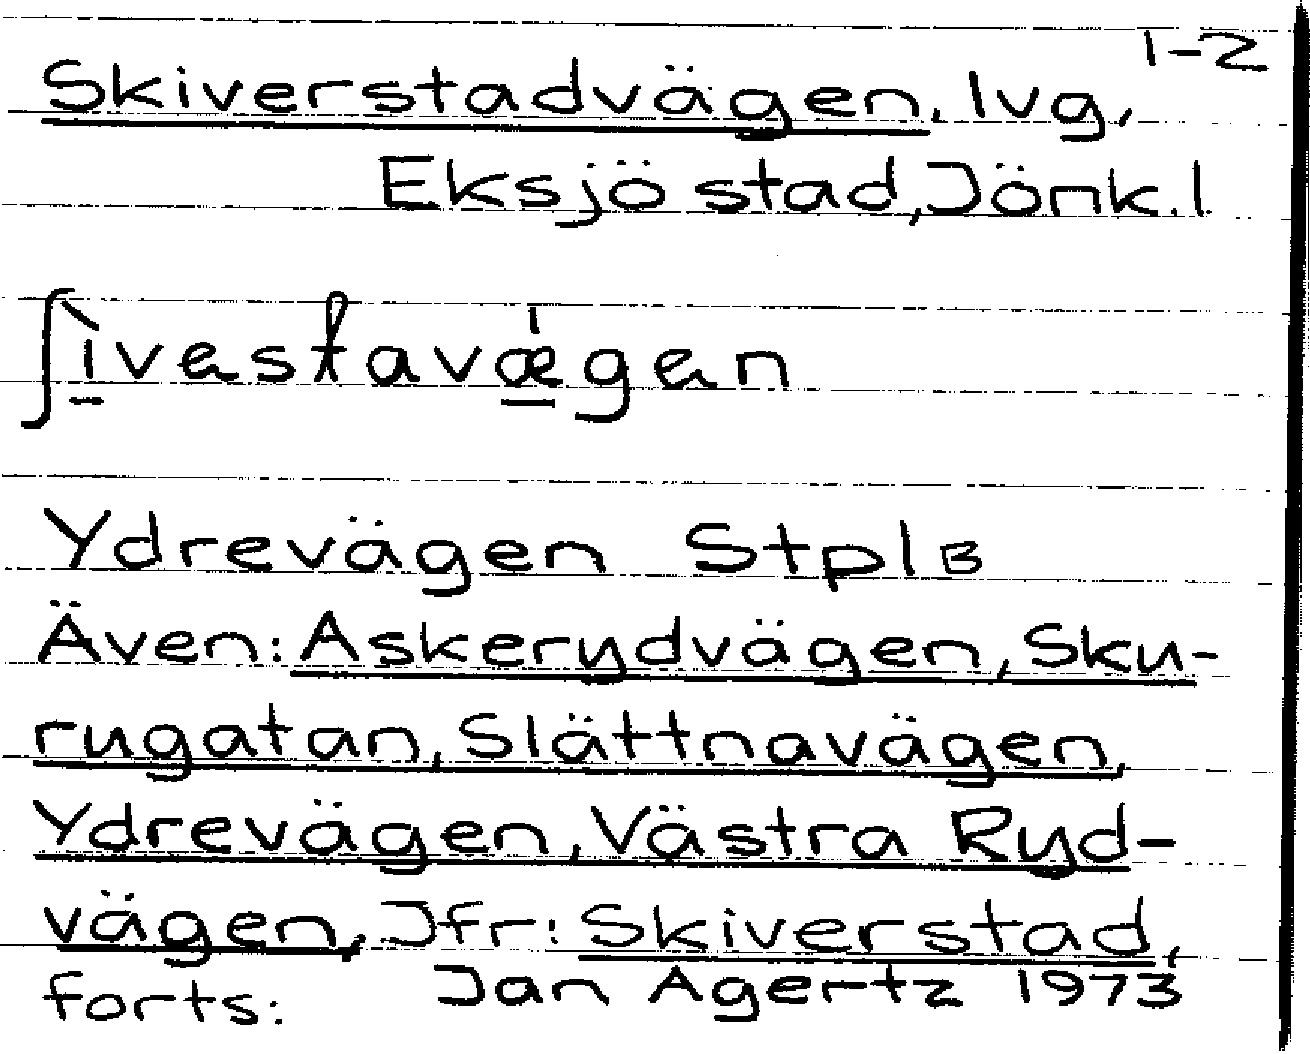 1-2
Skiverstadvägen, lvg,
Eksjö stad, Jönk. l
ʃìvestavǽgen
Ydrevägen StplB
Även: Askerydvägen, Sku-
rugatan, Slättnavägen,
Ydrevägen, Västra Ryd-
vägen, Jfr: Skiverstad,
forts: Jan Agertz 1973